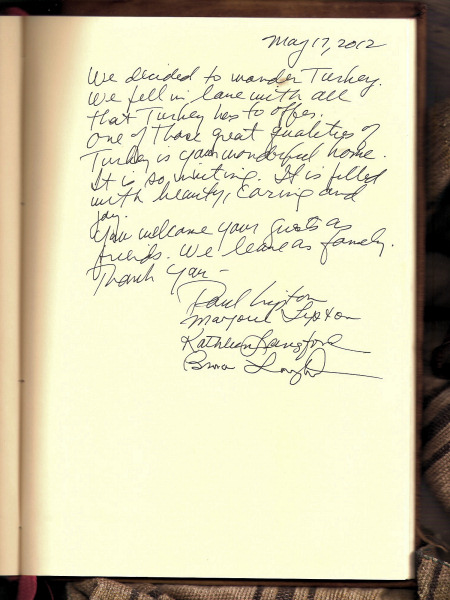 May 17, 2012
We decided to wander Turkey.
We fell in love with all
that Turkey has to offer.
One of those great qualities of
Turkey is your wonderful home.
It is so inviting. It is filled
with beauty, caring and
joy.
You welcome your guests as
friends. We leave as family.
Thank you –
Paul Lipton
Marjorie Lipton
Kathleen Langford